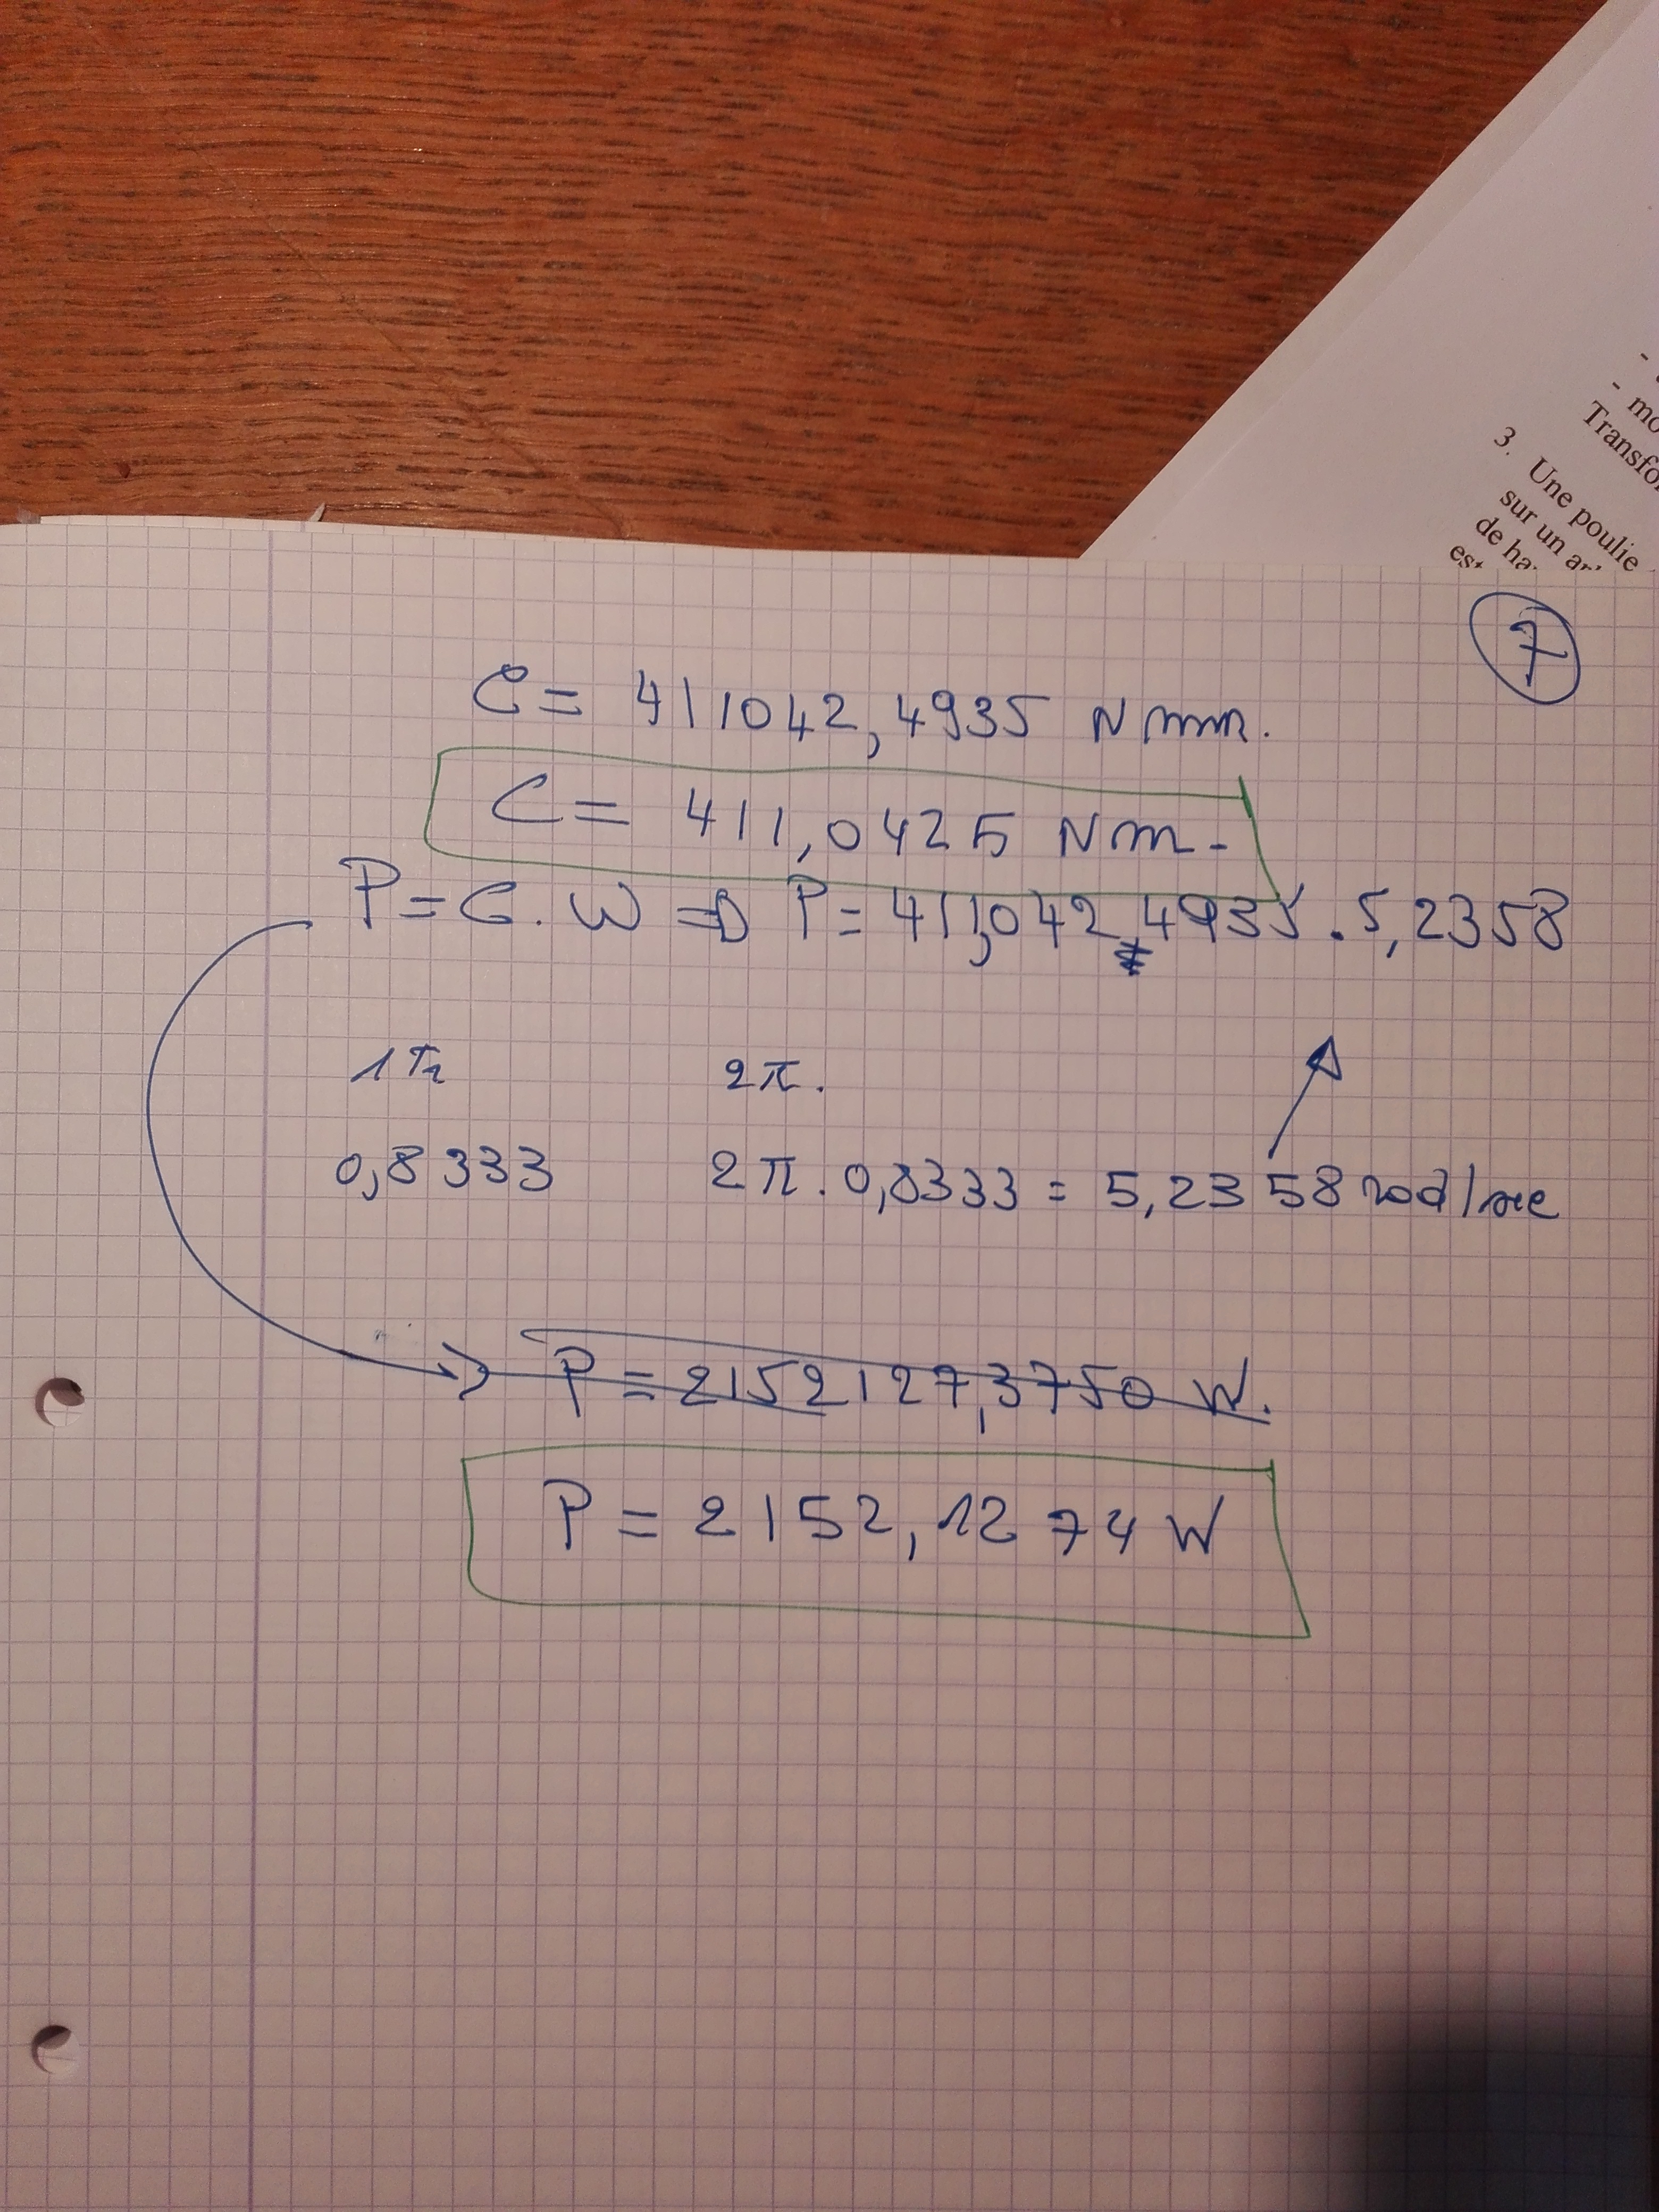 - mo
Transfo
3. Une poulie
sur un
de ha
est
7
C = 411042,4935 Nmm.
C = 411,0425 Nm.
P = C. W => P = 411,042 4935 . 5,2358
1 Tr 2π.
0,8333 2π . 0,8333 = 5,2358 rad/sec
P = 2152127,3750 W.
P = 2152,1274 W